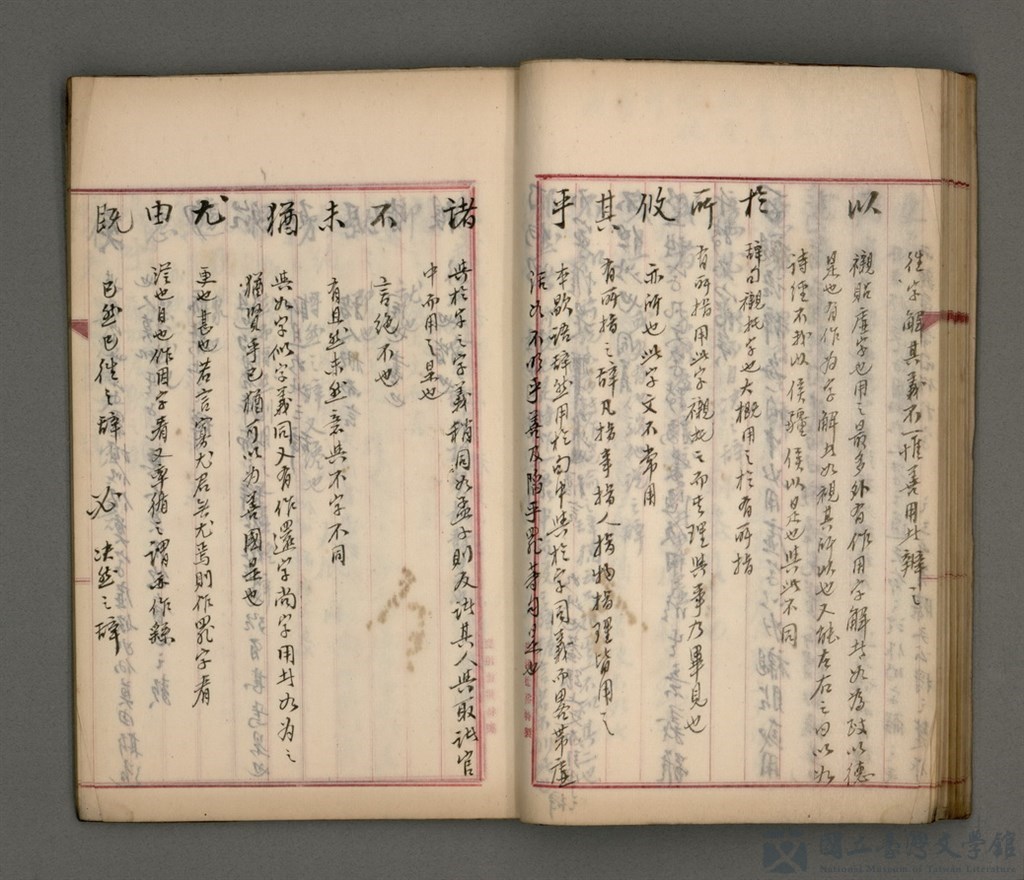 往字解其義不一惟善用此辨之
以 襯貼虛字也用之最多外有作用字解者如為政以德
是也有作為字解者如視其所以也又能左右之曰以如
詩經不我以侯彊侯以是也與此不同
於 辭句襯托字也大概用之於有所指
所 有所指用此字襯托之而其理與事乃畢見也
攸 亦所也此字文不常用
其 有所指之辭凡指事指人指物指理皆用之
乎 本歇語辭然用於句中與於字同義而略帶虛
活如不明乎善及陷乎罪等句是也
諸 與於字之字義稍同如孟子則反諸其人與取諸宮
中而用之是也
不 言絕不也
未 有且然未然意與不字不同
猶 與如字似字義同又有作還字尚字用者如為之
猶賢乎已猶可以為善國是也
尤 更也甚也若言寡尤君無尤焉則作罪字看
由 從也自也作因字看又率循之謂亦作繇
既 已然已往之辭 必 決然之辭
國立臺灣文學館
National Museum of Taiwan Literature